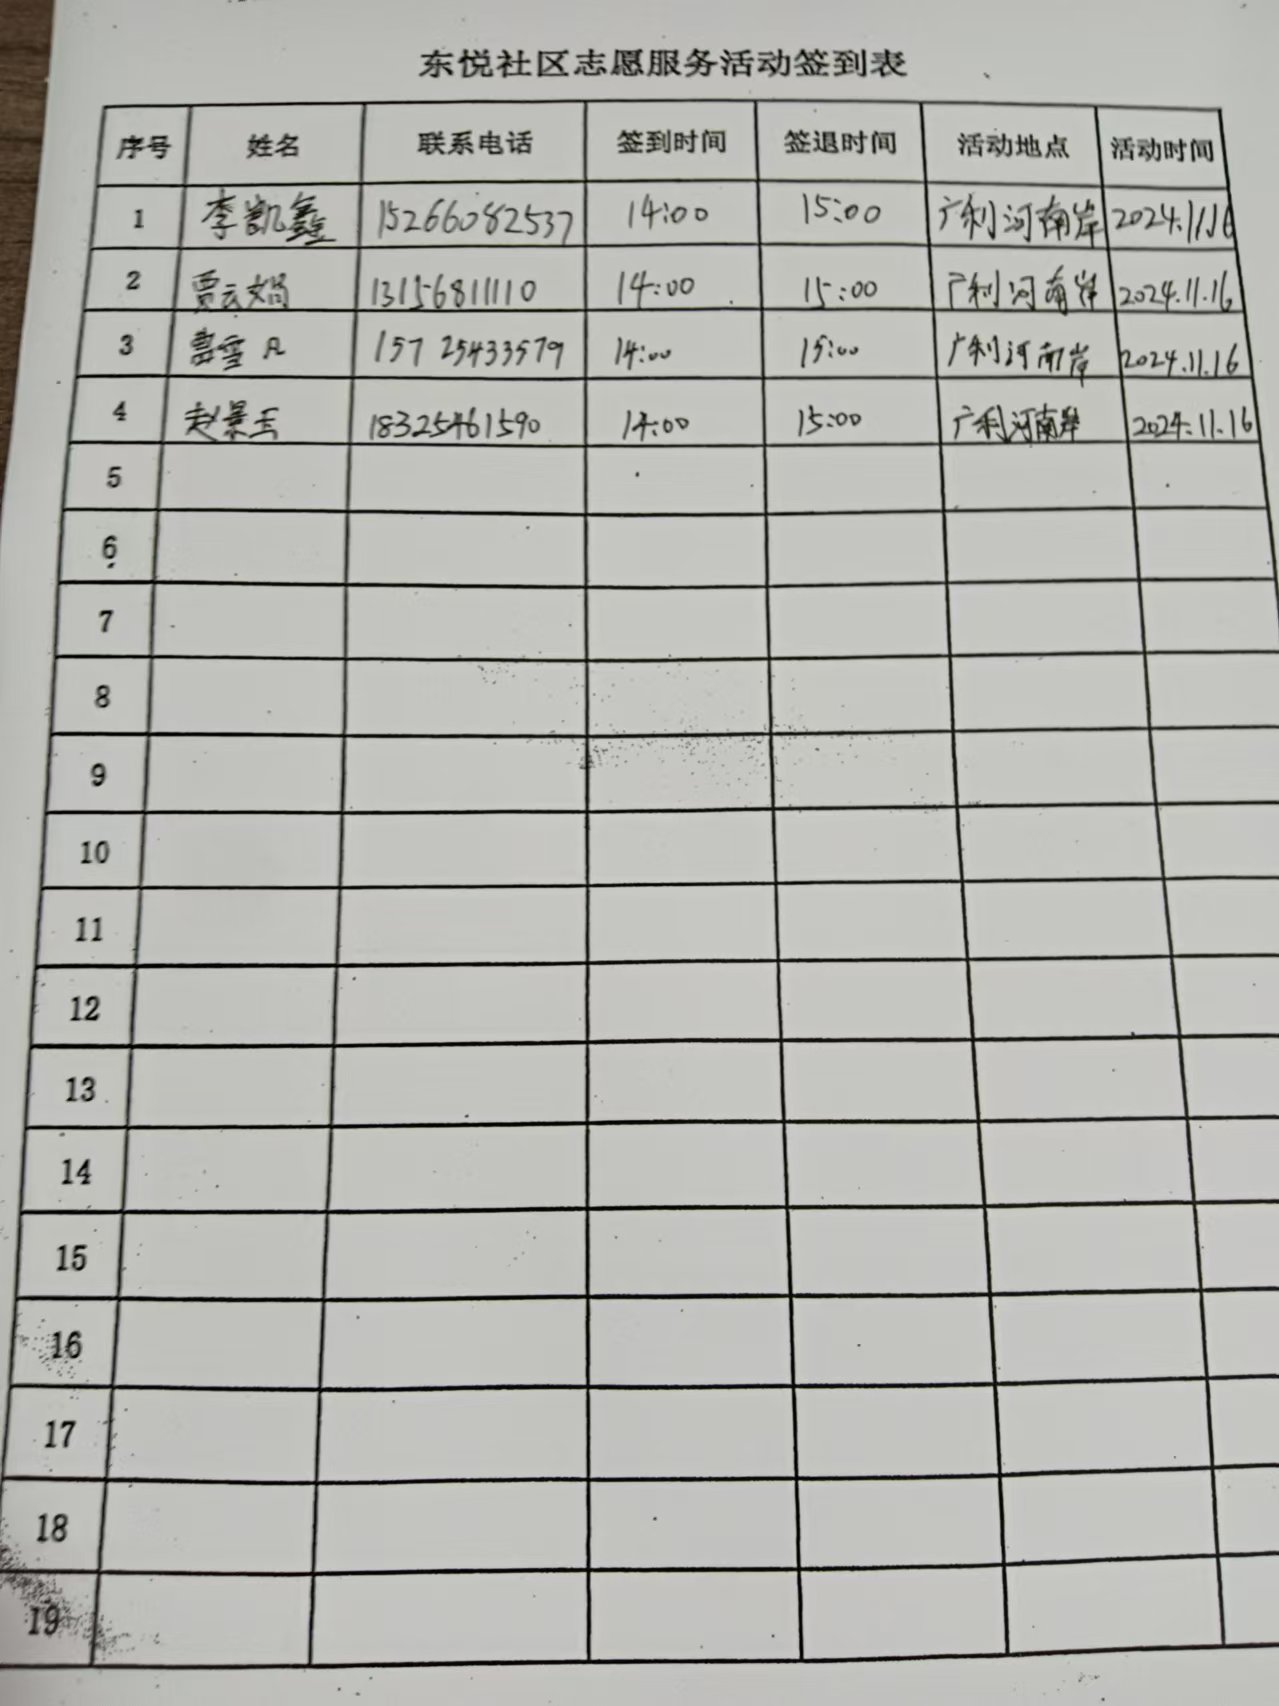 东悦社区志愿服务活动签到表
序号 姓名 联系电话 签到时间 签退时间 活动地点 活动时间
1 李凯鑫 15266082537 14:00 15:00 广利河南岸 2024.11.16
2 贾云娟 13156811110 14:00 15:00 广利河南岸 2024.11.16
3 雪凡 157 25433579 14:00 15:00 广利河南岸 2024.11.16
4 赵景玉 18325461590 14:00 15:00 广利河南岸 2024.11.16
5
6
7
8
9
10
11
12
13
14
15
16
17
18
19